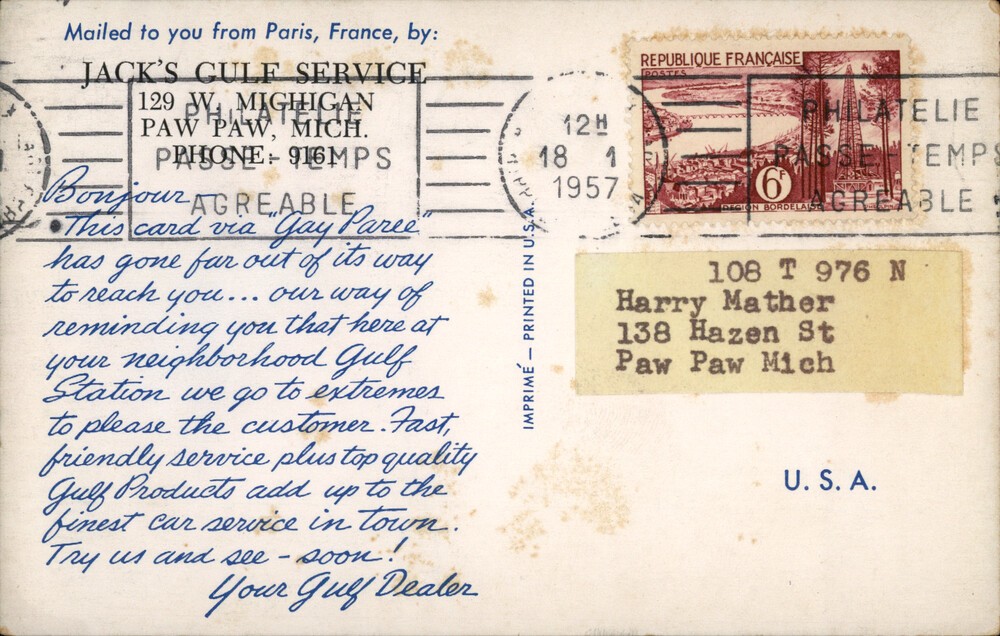 Mailed to you from Paris, France, by:
JACK'S GULF SERVICE
129 W. MIGHIGAN
PAW PAW, MICH.
PHONE: 9161
PHILATELIE
PASSE-TEMPS
AGREABLE
Bonjour —
This card via "Gay Paree"
has gone far out of its way
to reach you... our way of
reminding you that here at
your neighborhood Gulf
Station we go to extremes
to please the customer. Fast,
friendly service plus top quality
Gulf Products add up to the
finest car service in town.
Try us and see - soon!
Your Gulf Dealer
IMPRIMÉ — PRINTED IN U.S.A.
12H
18 1
1957
REPUBLIQUE FRANÇAISE
POSTES
6F
REGION BORDELAISE
PHILATELIE
PASSE-TEMPS
AGREABLE
108 T 976 N
Harry Mather
138 Hazen St
Paw Paw Mich
U. S. A.